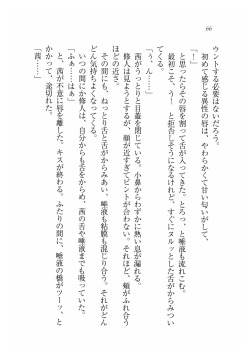 66
ウントする必要はないだろう。
初めて感じる異性の唇は、やわらかくて甘い匂いがして、
「！」
と思ったらその唇を割って舌が入ってきた。とろっ、と唾液も流れこむ。
最初こそ、う！　と拒否しそうになるけれど、すぐにヌルッとした舌がからみつい
てくる。
「う、ん……」
茜がうっとりと目蓋を閉じている。小鼻からわずかに熱い息が漏れる。
修人は見ようとするが、顔が近すぎてピントが合わない。それほど、頬がふれ合う
ほどの近さ。
その間にも、ねっとりと舌がからみあい、唾液も粘膜も混じり合う。それが
どんどん気持ちよくなってくる。
いつの間にか修人は、自分からも舌をからめ、茜の舌や唾液までも吸っていた。
「ふぁ……はぁ」
と、茜が不意に唇を離した。キスが終わる。ふたりの間に、唾液の橋がツーッ、と
かかって、途切れた。
「茜……」